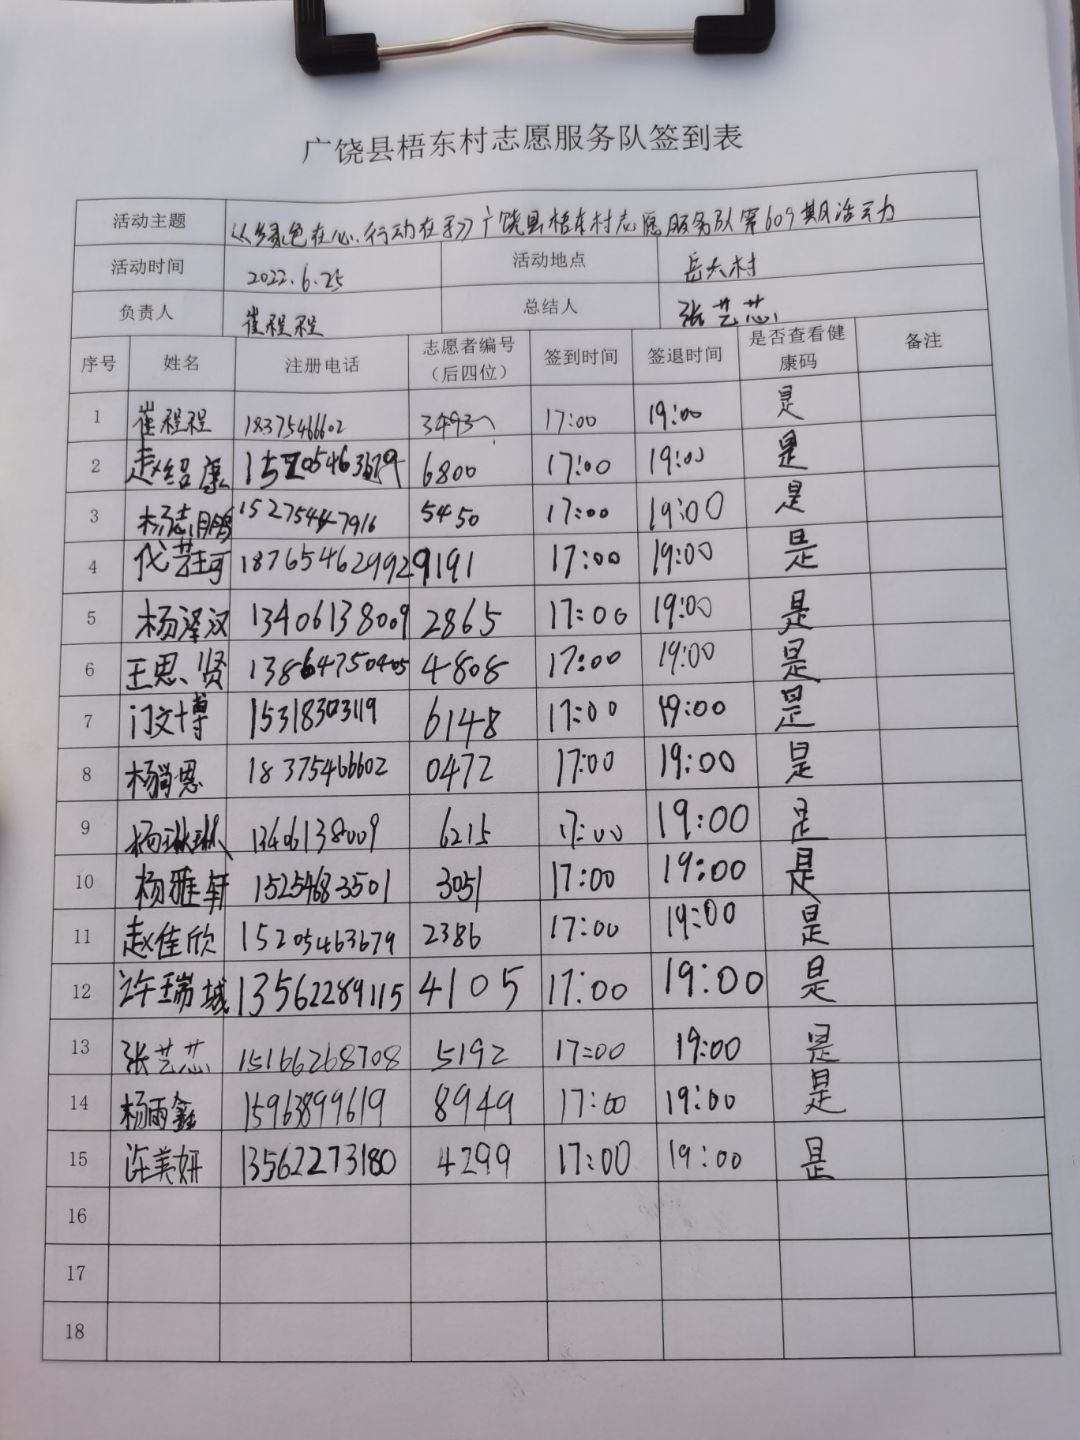 广饶县梧东村志愿服务队签到表
活动主题 《绿色在心.行动在手》广饶县梧东村志愿服务队第609期活动
活动时间 2022.6.25 活动地点 岳夫村
负责人 崔程程 总结人 张艺芯
序号 姓名 注册电话 志愿者编号（后四位） 签到时间 签退时间 是否查看健康码 备注
1 崔程程 18375466602 3493 17:00 19:00 是
2 赵绍康 15205463679 6800 17:00 19:00 是
3 杨志鹏 15275447916 5450 17:00 19:00 是
4 代芸珂 18765462992 9191 17:00 19:00 是
5 杨泽汉 13406138009 2865 17:00 19:00 是
6 王思贤 13864750405 4808 17:00 19:00 是
7 门文博 15318303119 6148 17:00 19:00 是
8 杨尚恩 18375466602 0472 17:00 19:00 是
9 杨琳琳 13406138009 6215 17:00 19:00 是
10 杨雅轩 15254683501 3051 17:00 19:00 是
11 赵佳欣 15205463679 2386 17:00 19:00 是
12 许瑞城 13562289115 4105 17:00 19:00 是
13 张艺芯 15166268708 5192 17:00 19:00 是
14 杨雨鑫 15963899619 8949 17:00 19:00 是
15 许美妍 13562273180 4299 17:00 19:00 是
16
17
18